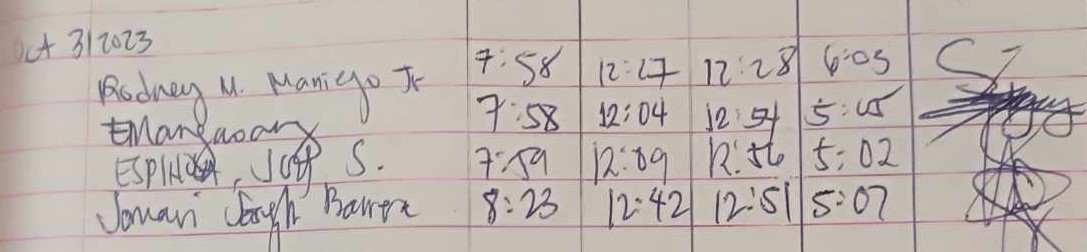 Oct 3/2023
Rodney M. Maniego Jr 7:58 12:27 12:28 6:03
EMangaoang 7:58 12:04 12:54 5:05
ESPINOSA, S. 7:59 12:09 12:56 5:02
Jomari Joseph Barrera 8:23 12:42 12:51 5:07